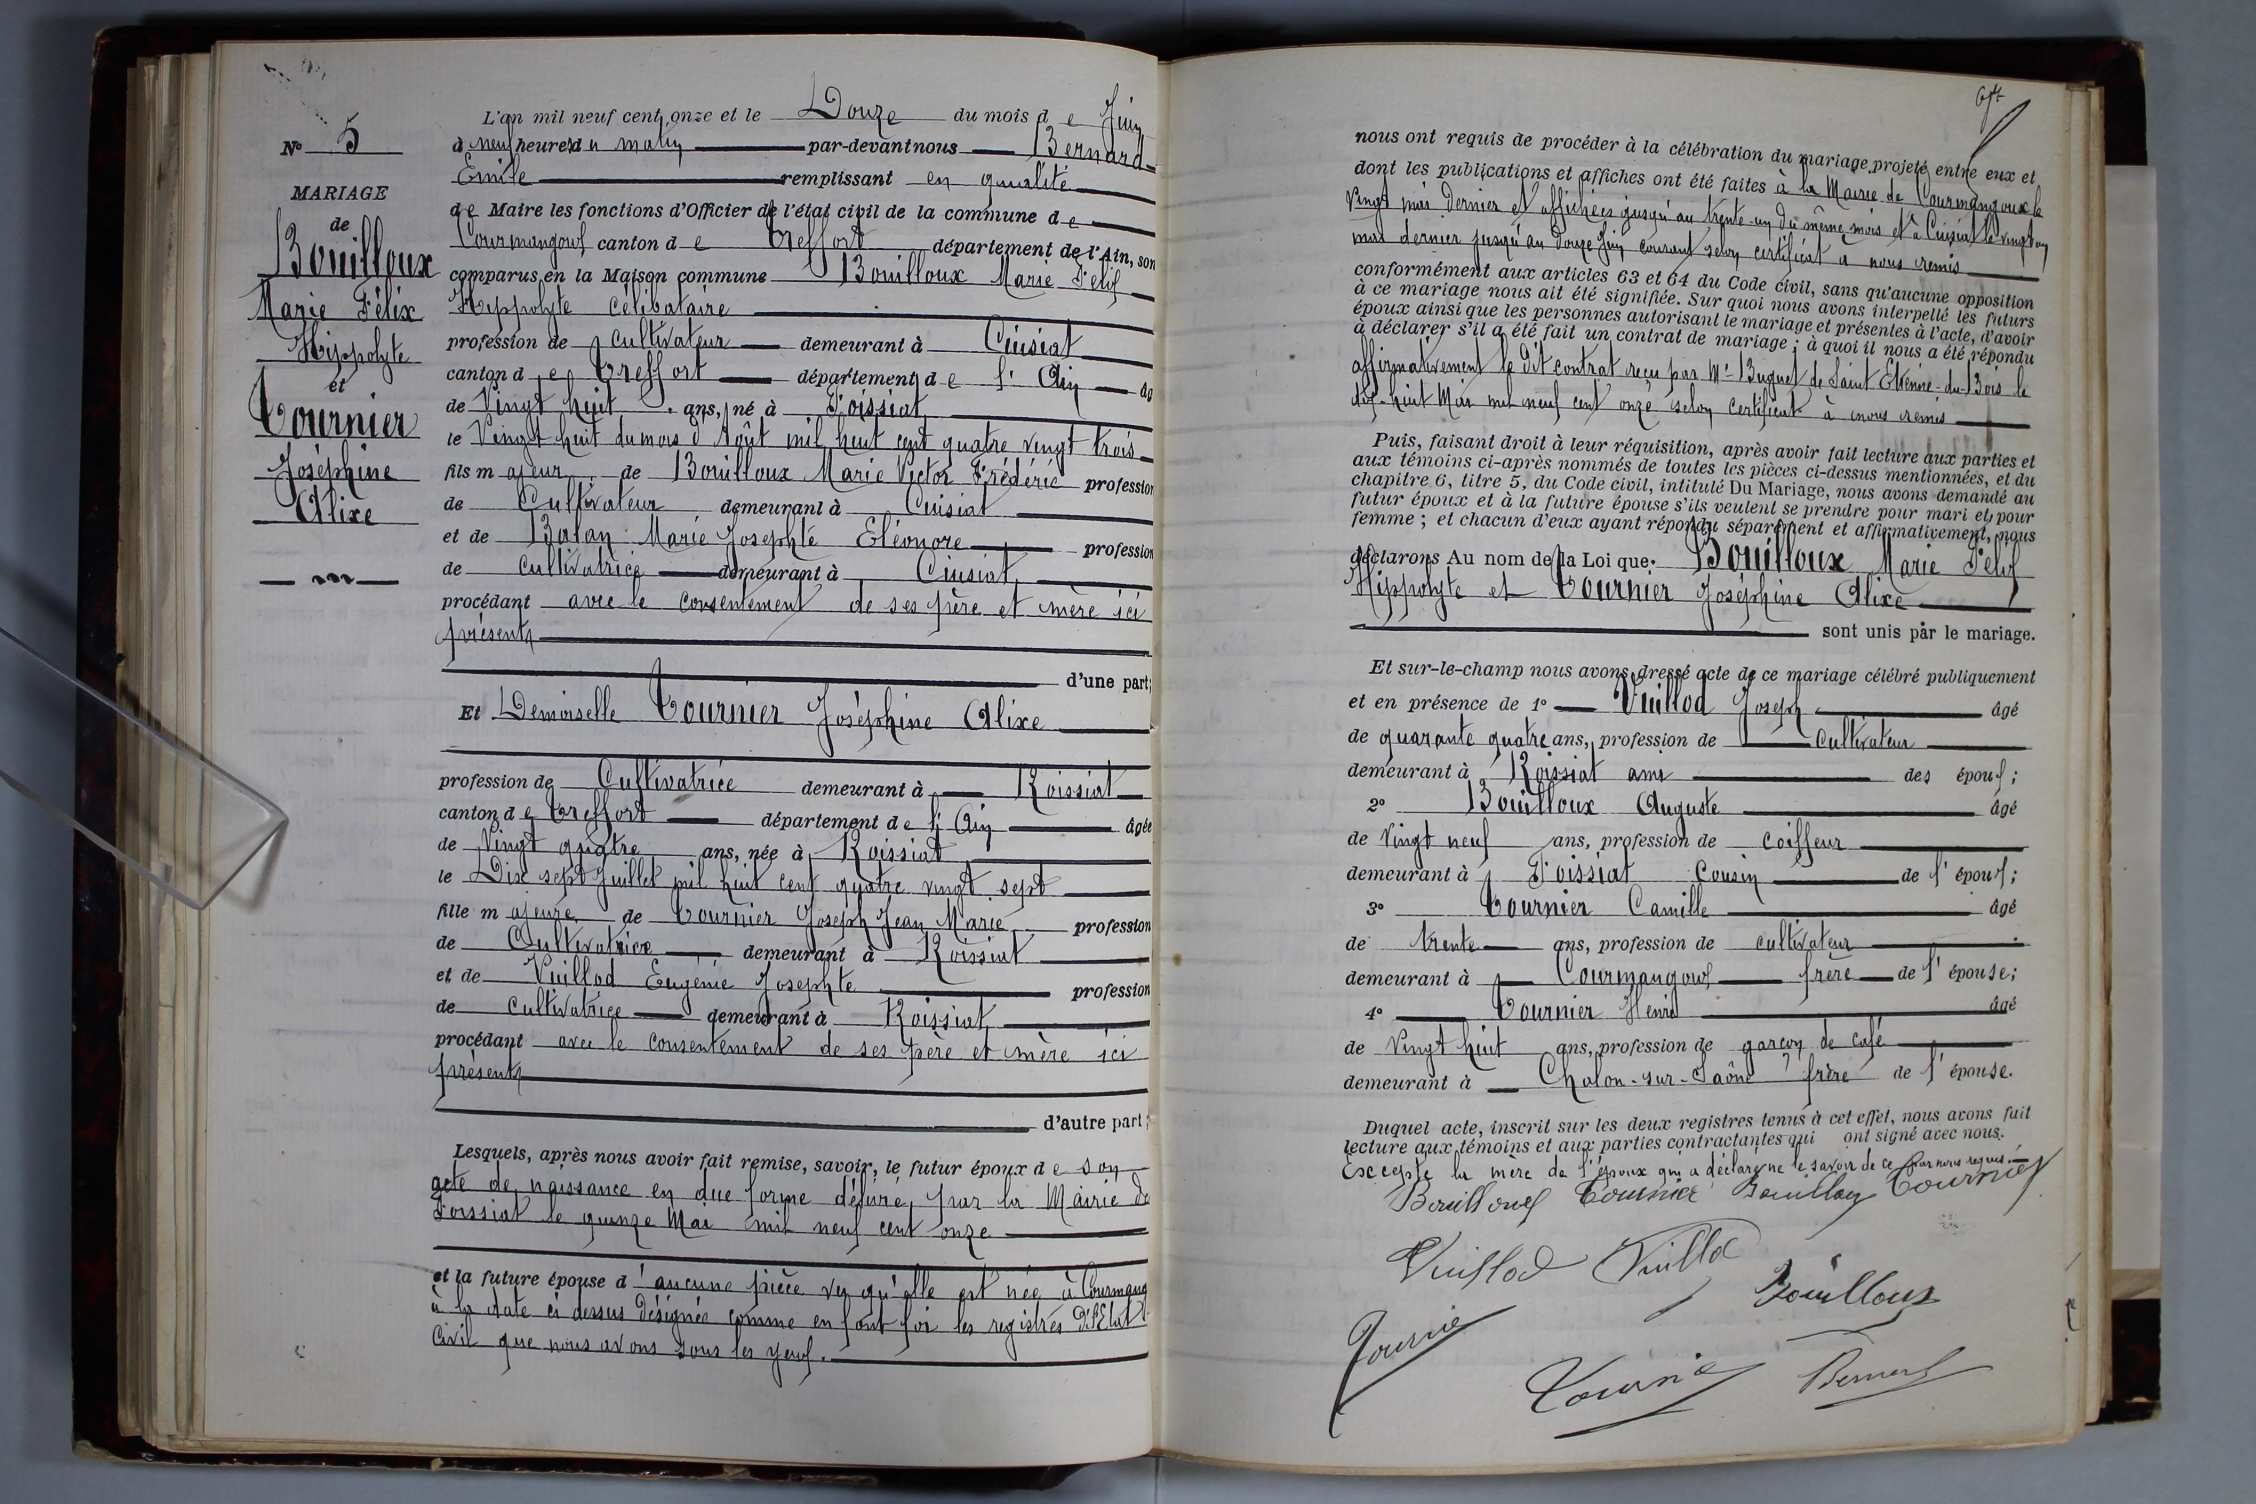 N° 5
MARIAGE
de
Bouilloux
Marie Félix
Hippolyte
et
Tournier
Joséphine
Alixe
L'an mil neuf cent onze et le Douze du mois de Juin
à neuf heures du matin par-devant nous Bernard
Emile remplissant en qualité
de Maire les fonctions d'Officier de l'état civil de la commune de
Courmangoux canton de Treffort département de l'Ain, son
comparus en la Maison commune Bouilloux Marie Félix
Hippolyte célibataire
profession de cultivateur demeurant à Cuisiat
canton de Treffort département de l'Ain âg
de Vingt huit ans, né à Foissiat
le Vingt huit du mois d'Août mil huit cent quatre vingt trois
fils majeur de Bouilloux Marie Victor Frédéric profession
de Cultivateur demeurant à Cuisiat
et de Balan Marie Josephte Eléonore profession
de cultivatrice demeurant à Cuisiat
procédant avec le consentement de ses père et mère ici
présents
d'une part;
Et Demoiselle Tournier Joséphine Alixe
profession de Cultivatrice demeurant à Roissiat
canton de Treffort département de l'Ain âgée
de Vingt quatre ans, née à Roissiat
le Dix sept Juillet mil huit cent quatre vingt sept
fille majeure de Tournier Joseph Jean Marie profession
de Cultivatrice demeurant à Roissiat
et de Vuillod Eugénie Josephte profession
de cultivatrice demeurant à Roissiat
procédant avec le consentement de ses père et mère ici
présents
d'autre part;
Lesquels, après nous avoir fait remise, savoir, le futur époux de son
acte de naissance en due forme délivré par la Mairie de
Foissiat le quinze Mai mil neuf cent onze
et la future épouse d'aucune pièce vu qu'elle est née à Courmang
à la date ci dessus désignée comme en font foi les registres de l'Etat
Civil que nous avons sous les yeux.
nous ont requis de procéder à la célébration du mariage projeté entre eux et
dont les publications et affiches ont été faites à la Mairie de Courmangoux le
vingt mai dernier et affichées jusqu'au trente-un du même mois et à Cuisiat le vingt un
mai dernier jusqu'au Douze Juin courant selon certificat à nous remis
conformément aux articles 63 et 64 du Code civil, sans qu'aucune opposition
à ce mariage nous ait été signifiée. Sur quoi nous avons interpellé les futurs
époux ainsi que les personnes autorisant le mariage et présentes à l'acte, d'avoir
à déclarer s'il a été fait un contrat de mariage; à quoi il nous a été répondu
affirmativement le dit contrat reçu par Me Buguet de Saint Etienne-du-Bois le
dix-huit Mai mil neuf cent onze selon certificat à nous remis
Puis, faisant droit à leur réquisition, après avoir fait lecture aux parties et
aux témoins ci-après nommés de toutes les pièces ci-dessus mentionnées, et du
chapitre 6, titre 5, du Code civil, intitulé Du Mariage, nous avons demandé au
futur époux et à la future épouse s'ils veulent se prendre pour mari et pour
femme; et chacun d'eux ayant répondu séparément et affirmativement, nous
déclarons Au nom de la Loi que: Bouilloux Marie Félix
Hippolyte et Tournier Joséphine Alixe
sont unis par le mariage.
Et sur-le-champ nous avons dressé acte de ce mariage célébré publiquement
et en présence de 1° Vuillod Joseph âgé
de quarante quatre ans, profession de cultivateur
demeurant à Roissiat ami des époux;
2° Bouilloux Auguste âgé
de vingt neuf ans, profession de coiffeur
demeurant à Foissiat Cousin de l'époux;
3° Tournier Camille âgé
de trente ans, profession de cultivateur
demeurant à Courmangoux frère de l'épouse;
4° Tournier Henri âgé
de vingt huit ans, profession de garçon de café
demeurant à Chalon-sur-Saône frère de l'épouse.
Duquel acte, inscrit sur les deux registres tenus à cet effet, nous avons fait
lecture aux témoins et aux parties contractantes qui ont signé avec nous.
Excepté la mère de l'époux qui a déclaré ne le savoir de ce par nous requis.
Bouilloux Tournier Bouilloux Tournier
Vuillod Vuillod
Bouilloux
Tournier
Tournier Bernard